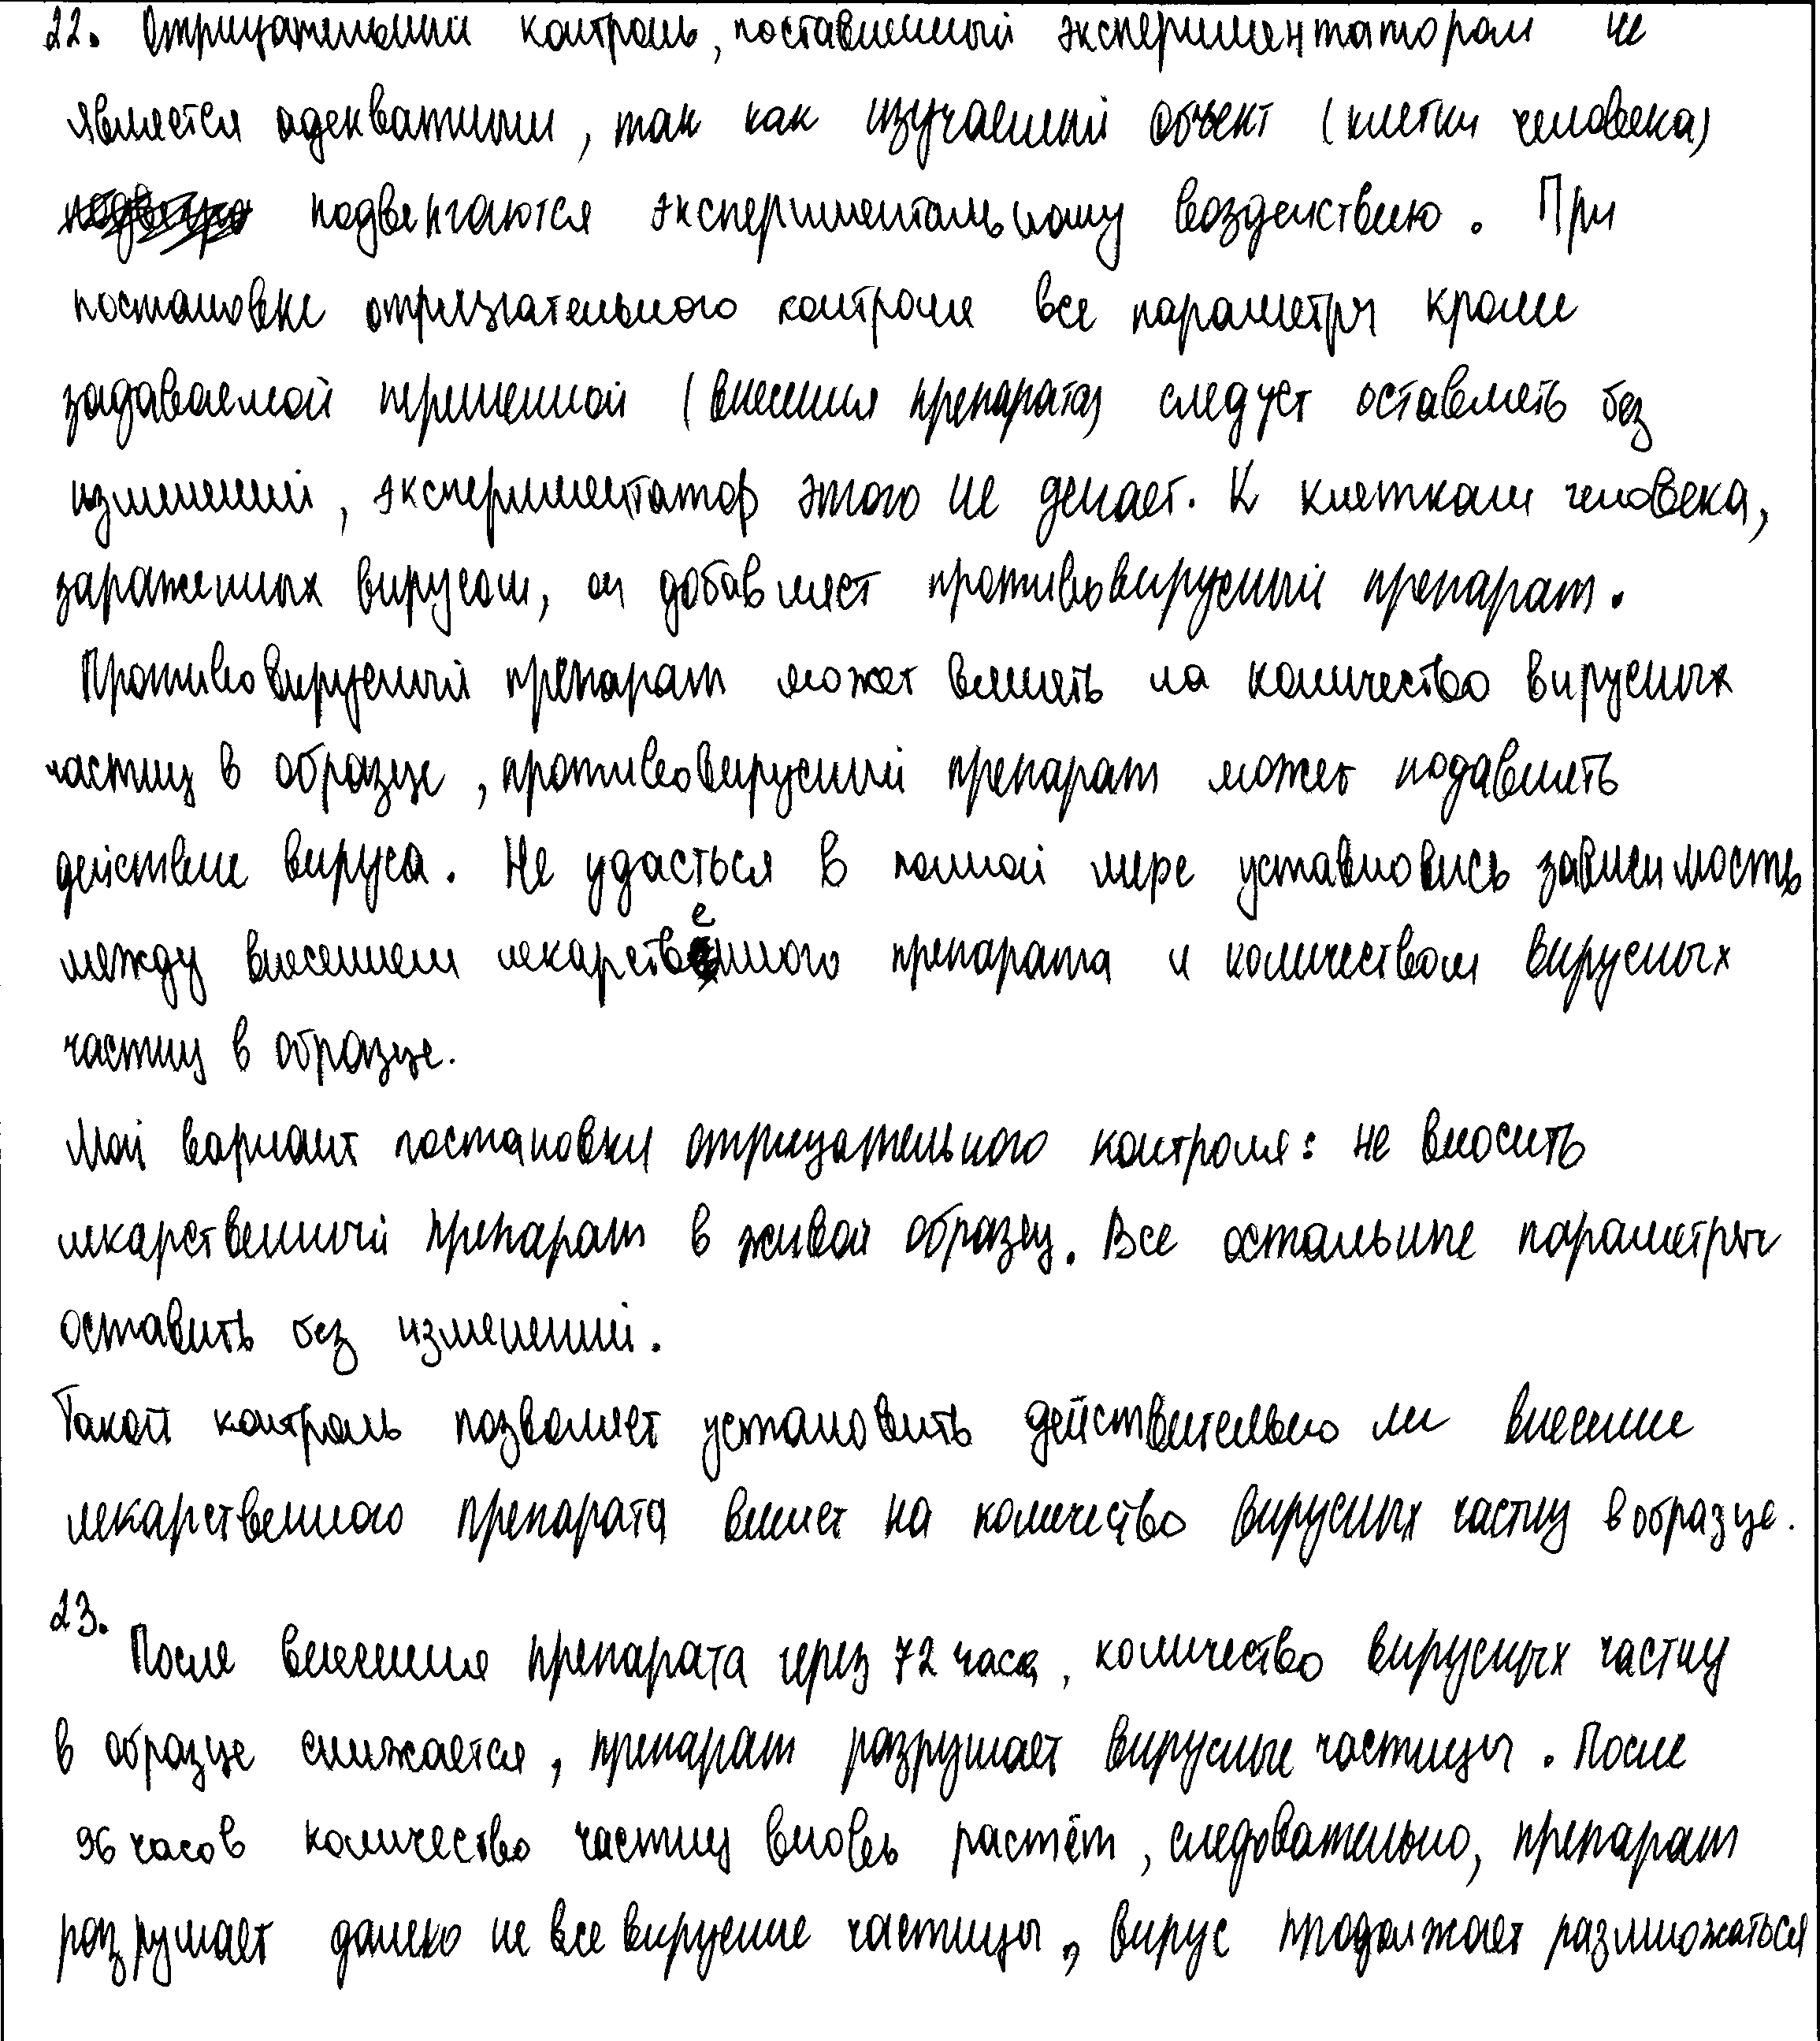 22. Отрицательный контроль, поставленный экспериментатором не
является адекватным, так как изучаемый объект (клетки человека)
подвергаются экспериментальному воздействию. При
постановке отрицательного контроля все параметры кроме
задаваемой переменной (внесения препарата) следует оставлять без
изменений, экспериментатор этого не делает. К клеткам человека,
зараженных вирусом, он добавляет противовирусный препарат.
Противовирусный препарат может влиять на количество вирусных
частиц в образце, противовирусный препарат может подавлять
действие вируса. Не удасться в полной мере установись зависимость
между внесением лекарственного препарата и количеством вирусных
частиц в образце.
Мой вариант постановки отрицательного контроля: не вносить
лекарственный препарат в живой образец. Все остальные параметры
оставить без изменений.
Такой контроль позволяет установить действительно ли внесение
лекарственного препарата влияет на количество вирусных частиц в образце.
23.
После внесения препарата через 72 часа, количество вирусных частиц
в образце снижается, препарат разрушает вирусные частицы. После
96 часов количество частиц вновь растёт, следовательно, препарат
разрушает далеко не все вирусные частицы, вирус продолжает размножаться